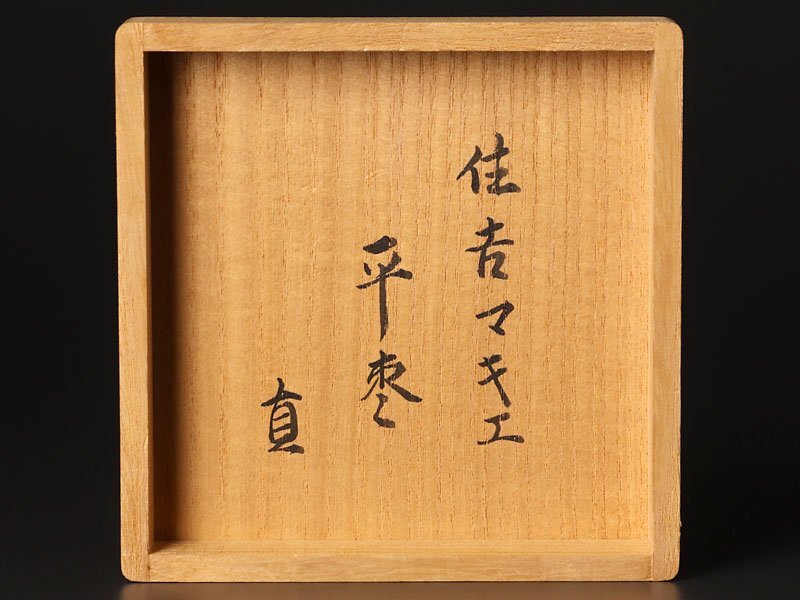 住吉マキエ
平棗
直